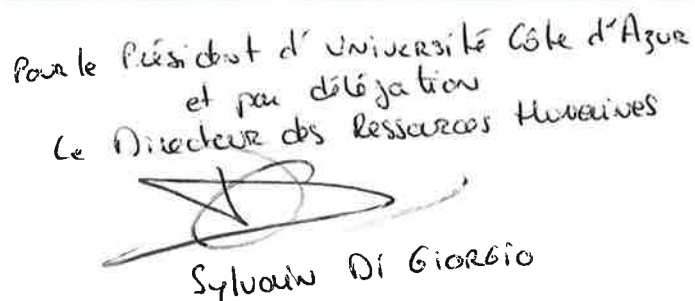 Pour le Président d'Université Côte d'Azur
et par délégation
Le Directeur des Ressources Humaines
Sylvain Di GIORGIO